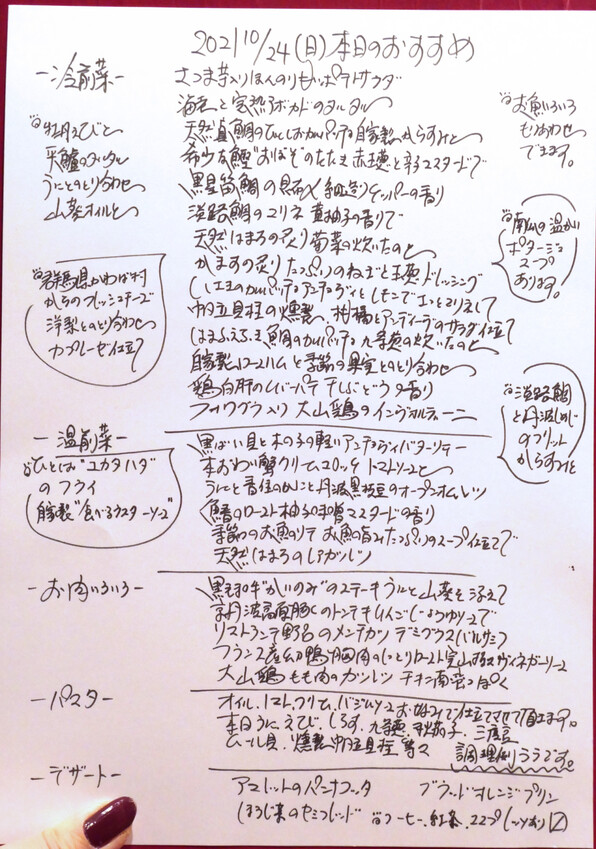 2021 10/24 (日) 本日のおすすめ
ー冷前菜ー
さつま芋入りほんのりカレーポテトサラダ
海老と完熟アボカドのタルタル
天然真鯛のひとしおカルパッチョ自家製からすみと
希少な鰹"おぼそ"のたたき 赤玉葱と辛子マスタードで
黒星笛鯛の昆布〆 ケッパーの香り
淡路鯛のマリネ 黄柚子の香りで
天然はまちの炙り 菊菜の炊いたのと
かますの炙り たっぷりのねぎと玉葱ドレッシング
しまえびのカルパッチョ アンディヴィとレモンで
帆立貝柱の燻製、柑橘とアンディーブのサラダ仕立て
はまふえふき鯛のカルパッチョ 九条葱の炊いたのと
自家製ロースハムと季節の果実とのとり合わせ
鶏白肝のレバーパテ 干しぶどうの香り
フォワグラ入り 大山鶏のインヴォルティーニ
牡丹えびと
平鱸のタルタル
うにとのとり合わせ
山葵オイルと
群馬県かわば村
からのフレッシュチーズ
洋梨とのとり合わせ
カプレーゼ仕立て
お魚いろいろ
もりあわせ
できます。
南瓜の温かい
ポタージュ
スープ
あります。
淡路鯛
と丹波しめじ
のフリット
からすみと
ー温前菜ー
黒ばい貝と木の子の軽いアンチョヴィバターソテー
本ずわい蟹クリームコロッケ トマトソースと
うにと香住のかにと丹波黒枝豆のオープンオムレツ
鰆のロースト柚子味噌マスタードの香り
季節のお魚のソテー お魚の旨みたっぷりのスープ仕立てで
天然はまちのレアカツレツ
ひとは"ユカタハダ"
のフライ
自家製"食べるウスターソース"
ーお肉いろいろー
黒毛和牛"かいのみ"のステーキ うにと山葵を添えて
京丹波高原豚のトンテキ りんごじょうゆソースで
リストランテ野呂のメンチカツ デミグラス バルサミコ
フランス産幼鴨胸肉のしっとりロースト 実山椒ヴィネガーソース
大山鶏もも肉のカツレツ チキン南蛮っぽく
ーパスター
オイル、トマト、クリーム、バジルソースお好みで仕立てさせて頂きます。
本日うに、えび、しらす、九条葱、秋茄子、三度豆
ムール貝、燻製帆立貝柱 等々
調理例うらです。
ーデザートー
アマレットのパンナコッタ ブラッドオレンジプリン
ほうじ茶のセミフレッド コーヒー、紅茶、エスプレッソあり